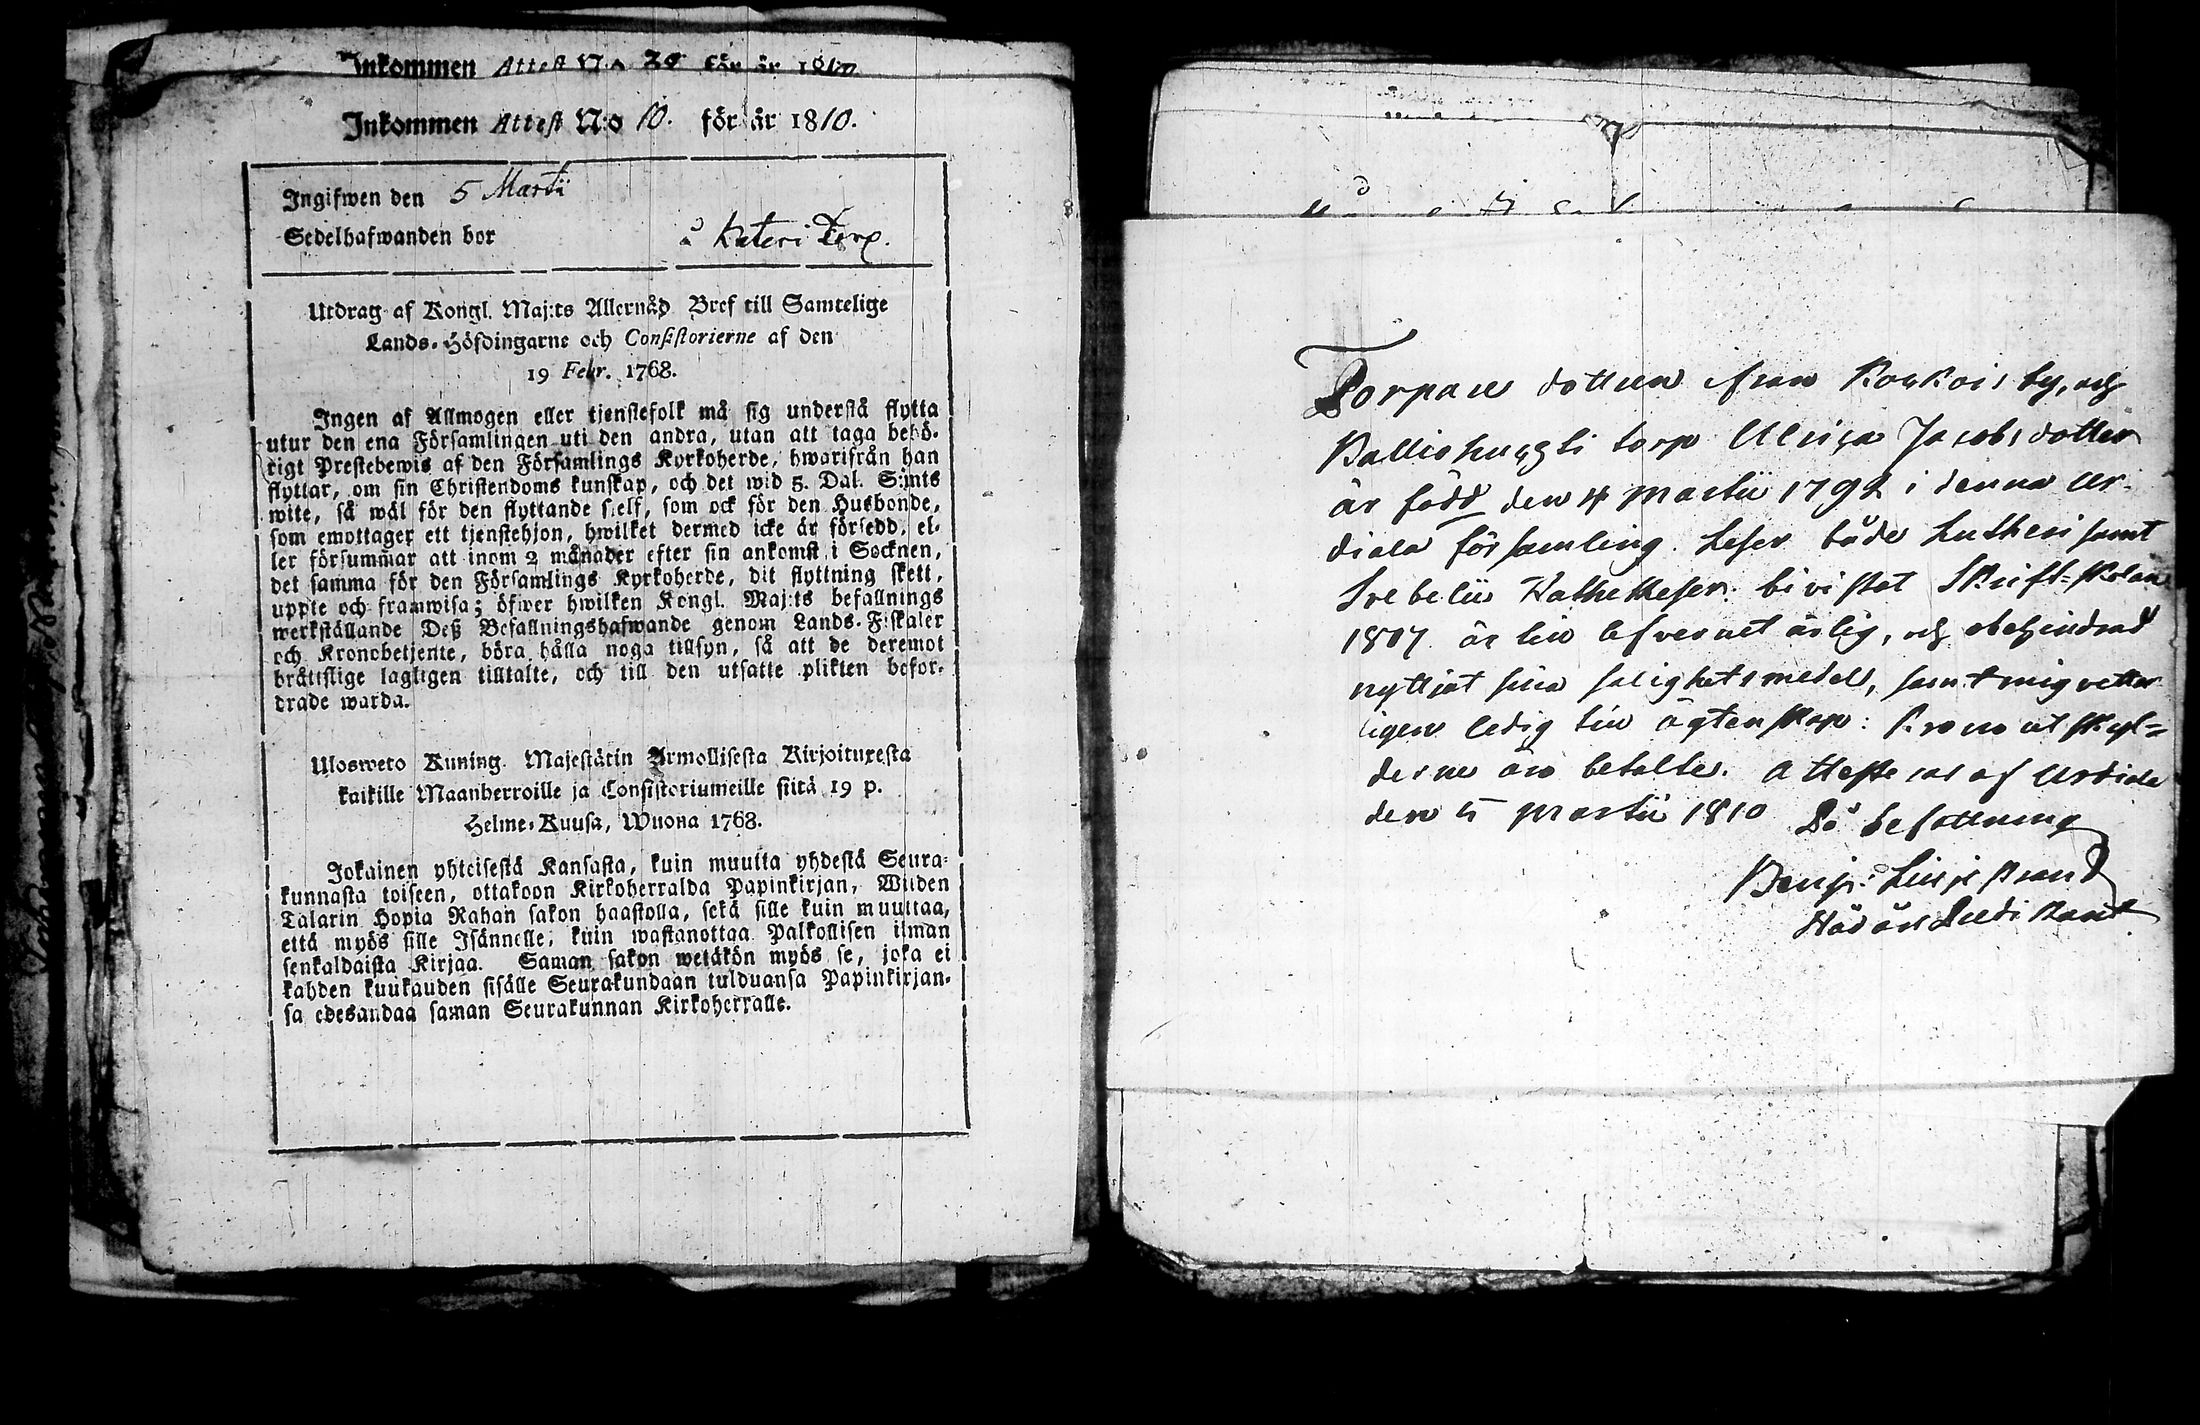 Inkommen Attest N:o för år 1810
Inkommen Attest N:o 10. för år 1810.
Ingifwen den 5 Martii
Sedelhafwanden bor å Kateri Torp.
Utdrag af Kongl. Maj:ts Allernåd Bref till Samtelige
Lands-Höfdingarne och Consistorierne af den
19 Febr. 1768.
Ingen af Allmogen eller tjenstefolk må sig understå flytta
utur den ena Församlingen uti den andra, utan att taga behö-
rigt Prestebewis af den Församlings Kyrkoherde, hwarifrån han
flyttar, om sin Christendoms kunskap, och det wid 5. Dal. S:mts
wite, så wäl för den flyttande sjelf, som ock för den Husbonde,
som emottager ett tjenstehjon, hwilket dermed icke är försedd, el-
ler försummar att inom 2 månader efter sin ankomst i Socknen,
det samma för den Församlings Kyrkoherde, dit flyttning skett,
uppte och framwisa; öfwer hwilken Kongl. Maj:ts befallnings
werkställande Deß Befallningshafwande genom Lands-Fiskaler
och Kronobetjente, böra hålla noga tillsyn, så att de deremot
bråttslige lagligen tilltalte, och till den utsatte plikten befor-
drade warda.
Ulosweto Kuning. Majestätin Armollisesta Kirjoituxesta
kaikille Maanherroille ja Consistoriumeille siitä 19 p.
Helme-Kuusa, Wuona 1768.
Jokainen yhteisestä Kansasta, kuin muutta yhdestä Seura-
kunnasta toiseen, ottakoon Kirkoherralda Papinkirjan, Wiiden
Talarin Hopia Rahan sakon haastolla, sekä sille kuin muuttaa,
että myös sille Isännelle, kuin wastanottaa Palkollisen ilman
senkaldaista Kirjaa. Saman sakon wetäkön myös se, joka ei
kahden kuukauden sisälle Seurakundaan tulduansa Papinkirjan-
sa edesandaa saman Seurakunnan Kirkoherralle.
Torpare dottren ifrån Koskois by, och
torp Ulrica Jacobsdotter
är född den 4 Martii 1792 i denna Ur-
diala församling. Läser både Lutheri samt
Svebelii Kathekeser. bivistat Skrift-skolan
1807. är till lefvernet ärlig, och obehindrad
nyttjat sina salighetsmedel, samt mig vetter
ligen ledig till ägtenskap: Krono utskyl=
derne äro betalte. Attesteras af Urdiala
den 5 Martii 1810 På befallning
Benj: Liljestrand
Nådårs Predikant